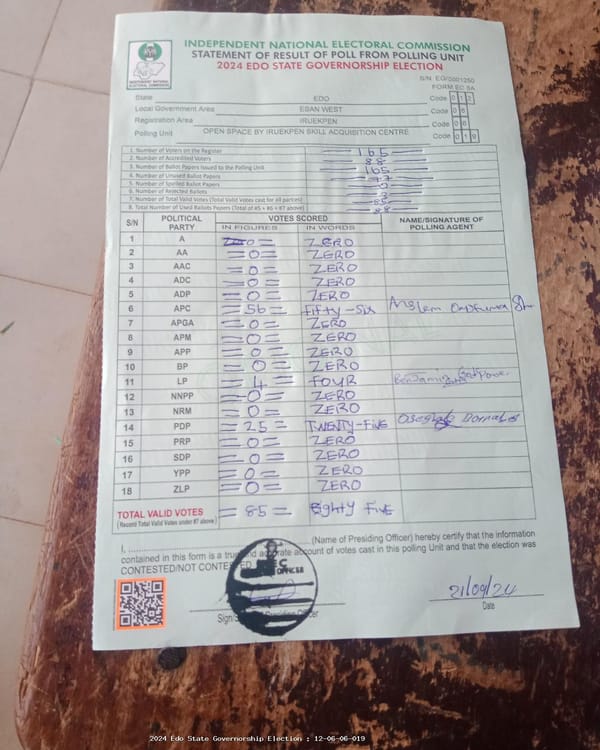 INDEPENDENT NATIONAL ELECTORAL COMMISSION
STATEMENT OF RESULT OF POLL FROM POLLING UNIT
2024 EDO STATE GOVERNORSHIP ELECTION
INDEPENDENT NATIONAL
ELECTORAL COMMISSION
S/N EG/0001250
FORM EC 8A
State EDO Code 0 1 2
Local Government Area ESAN WEST Code 0 6
Registration Area IRUEKPEN Code 0 6
Polling Unit OPEN SPACE BY IRUEKPEN SKILL ACQUISITION CENTRE Code 0 1 9
1. Number of Voters on the Register 165
2. Number of Accredited Voters 88
3. Number of Ballot Papers Issued to the Polling Unit 165
4. Number of Unused Ballot Papers 77
5. Number of Spoiled Ballot Papers 0
6. Number of Rejected Ballots 3
7. Number of Total Valid Votes (Total Valid Votes cast for all parties) 85
8. Total Number of Used Ballots Papers (Total of #5 + #6 + #7 above) 88
S/N POLITICAL PARTY VOTES SCORED NAME/SIGNATURE OF POLLING AGENT
IN FIGURES IN WORDS
1 A =0= ZERO
2 AA =0= ZERO
3 AAC =0= ZERO
4 ADC =0= ZERO
5 ADP =0= ZERO
6 APC =56= Fifty-Six Anslem
7 APGA =0= ZERO
8 APM =0= ZERO
9 APP =0= ZERO
10 BP =0= ZERO
11 LP =4= FOUR Benjamin
12 NNPP =0= ZERO
13 NRM =0= ZERO
14 PDP =25= TWENTY-FIVE
15 PRP =0= ZERO
16 SDP =0= ZERO
17 YPP =0= ZERO
18 ZLP =0= ZERO
TOTAL VALID VOTES =85= Eighty Five
(Record Total Valid Votes under #7 above)
I, (Name of Presiding Officer) hereby certify that the information
contained in this form is a true and accurate account of votes cast in this polling Unit and that the election was
CONTESTED/NOT CONTESTED
OFFICER
21/09/24
Date
2024 Edo State Governorship Election : 12-06-06-019